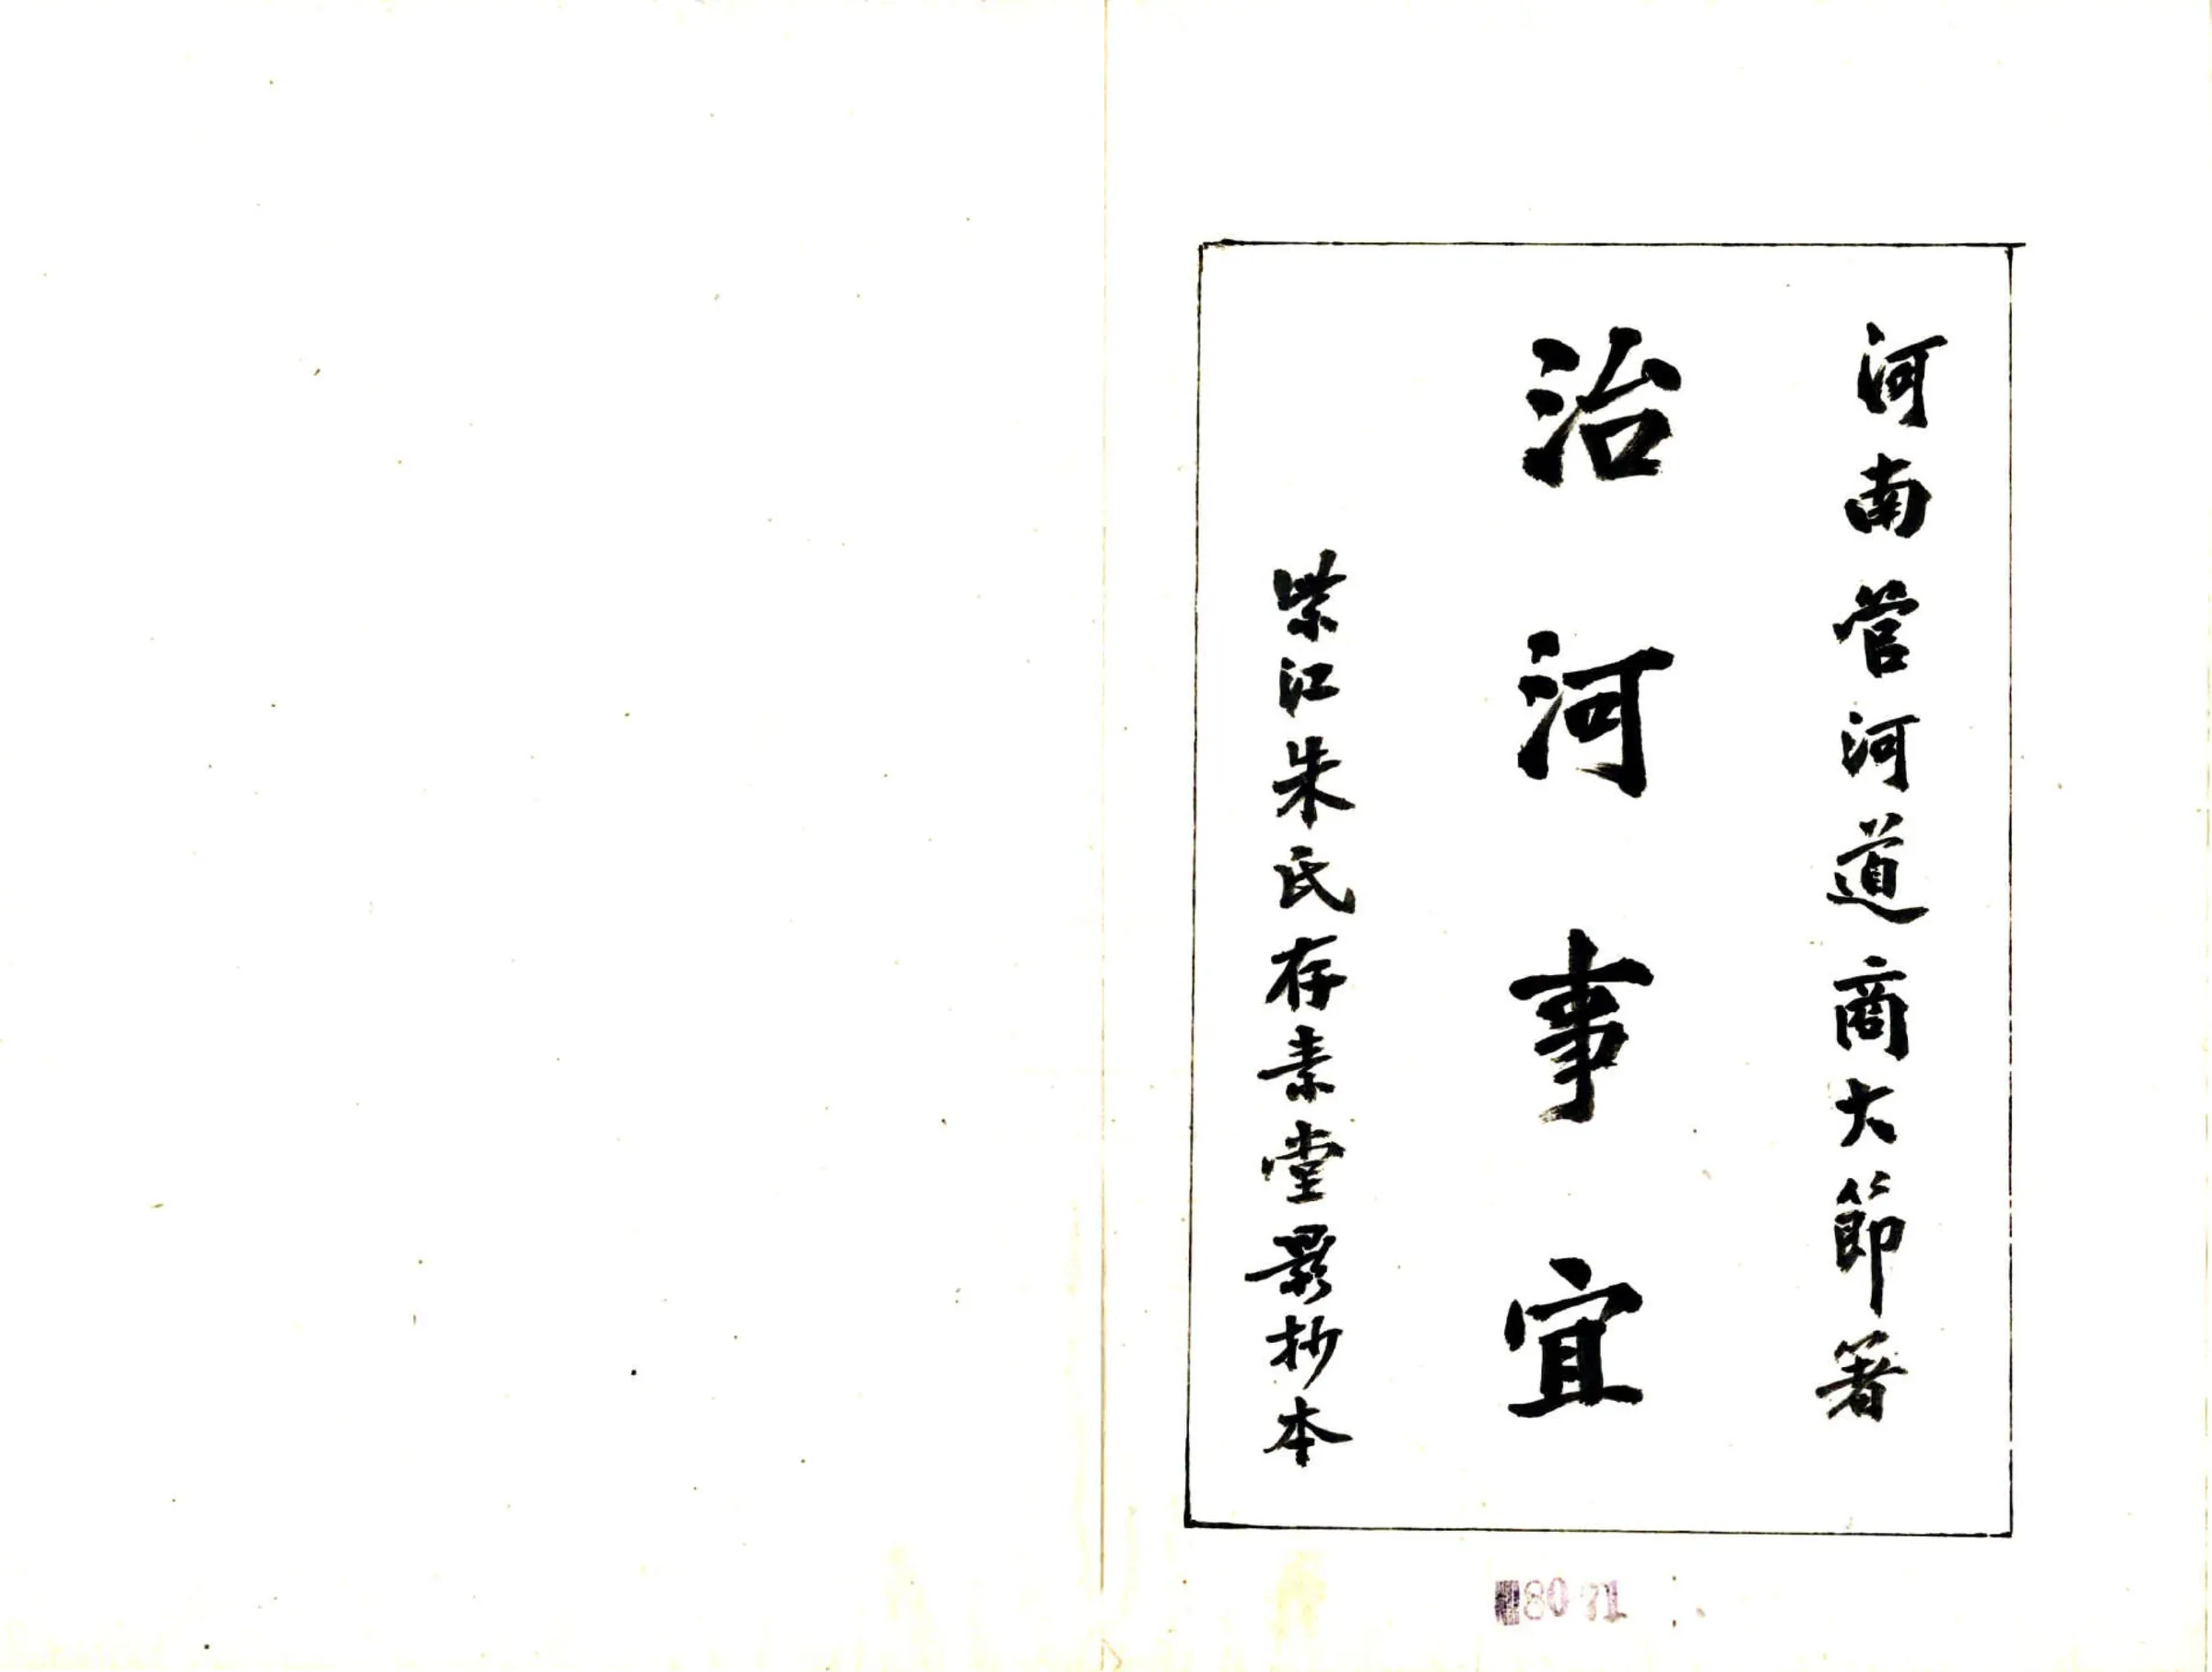 河南管河道商大節著
治河事宜
紫江朱氏存素堂影抄本